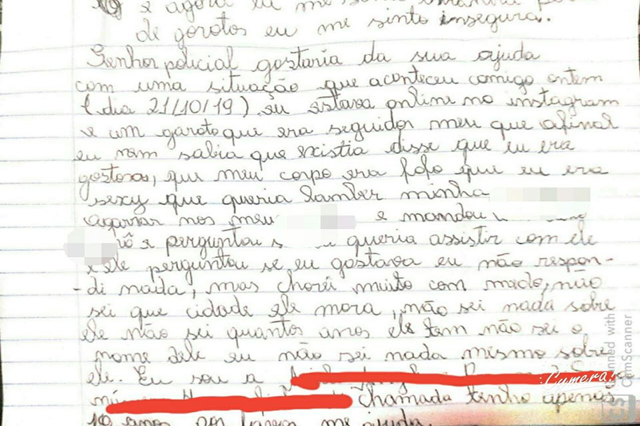 e agora eu me
de garotos eu me sinto insegura.
Senhor policial gostaria da sua ajuda
com uma situação que aconteceu comigo ontem
(dia 21/10/19) eu estava online no instagram
e um garoto que era seguidor meu que afinal
eu nem sabia que existia disse que eu era
gostosa, que meu corpo era fofo que eu era
sexy que queria lamber minha
agarrar nos meu e mandou
e perguntou s queria assistir com ele
e ele perguntou se eu gostava eu não respon-
di nada, mas chorei muito com medo, não
sei que cidade ele mora, não sei nada sobre
ele não sei quantos anos ele tem não sei o
nome dele eu não sei nada mesmo sobre
ele. Eu sou a
chamada tenho apenas
10 anos por favor me ajuda.
Scanned with
CamScanner